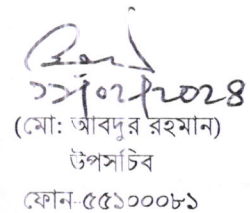 ১১/০২/২০২৪
(মো: আবদুর রহমান)
উপসচিব
ফোন-৫৫১০০০৮১